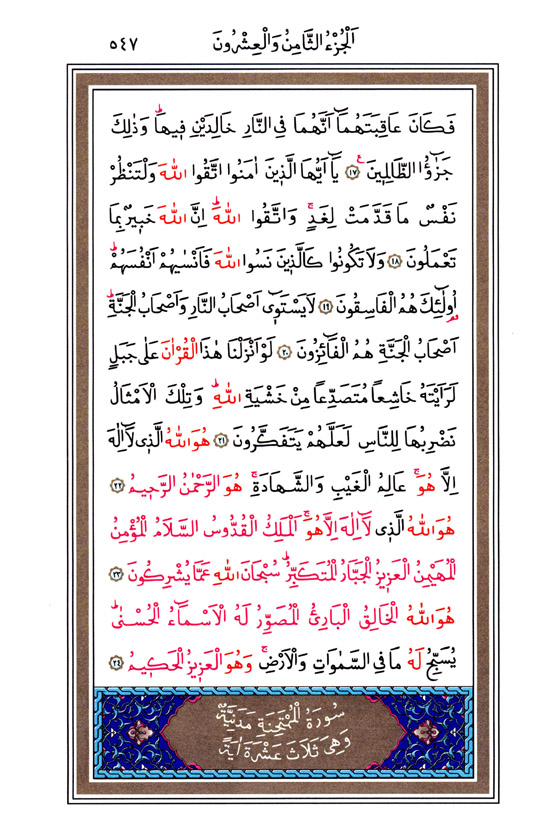 اَلْجُزْءُ الثَّامِنُ وَالْعِشْرُونَ
٥٤٧
فَكَانَ عَاقِبَتَهُمَٓا اَنَّهُمَا فِي النَّارِ خَالِدَيْنِ فٖيهَاۜ وَذٰلِكَ
جَزٰٓؤُا الظَّالِمٖينَࣖ ﴿١٧﴾ يَٓا اَيُّهَا الَّذٖينَ اٰمَنُوا اتَّقُوا اللّٰهَ وَلْتَنْظُرْ
نَفْسٌ مَا قَدَّمَتْ لِغَدٍۚ وَاتَّقُوا اللّٰهَۜ اِنَّ اللّٰهَ خَبٖيرٌ بِمَا
تَعْمَلُونَ ﴿١٨﴾ وَلَا تَكُونُوا كَالَّذٖينَ نَسُوا اللّٰهَ فَاَنْسٰيهُمْ اَنْفُسَهُمْۜ
اُو۬لٰٓئِكَ هُمُ الْفَاسِقُونَ ﴿١٩﴾ لَا يَسْتَوٖٓي اَصْحَابُ النَّارِ وَاَصْحَابُ الْجَنَّةِۜ
اَصْحَابُ الْجَنَّةِ هُمُ الْفَٓائِزُونَ ﴿٢٠﴾ لَوْ اَنْزَلْنَا هٰذَا الْقُرْاٰنَ عَلٰى جَبَلٍ
لَرَاَيْتَهُ خَاشِعًا مُتَصَدِّعًا مِنْ خَشْيَةِ اللّٰهِۜ وَتِلْكَ الْاَمْثَالُ
نَضْرِبُهَا لِلنَّاسِ لَعَلَّهُمْ يَتَفَكَّرُونَ ﴿٢١﴾ هُوَ اللّٰهُ الَّذٖي لَٓا اِلٰهَ
اِلَّا هُوَۚ عَالِمُ الْغَيْبِ وَالشَّهَادَةِۚ هُوَ الرَّحْمٰنُ الرَّحٖيمُ ﴿٢٢﴾
هُوَ اللّٰهُ الَّذٖي لَٓا اِلٰهَ اِلَّا هُوَۚ اَلْمَلِكُ الْقُدُّوسُ السَّلَامُ الْمُؤْمِنُ
الْمُهَيْمِنُ الْعَزٖيزُ الْجَبَّارُ الْمُتَكَبِّرُۜ سُبْحَانَ اللّٰهِ عَمَّا يُشْرِكُونَ ﴿٢٣﴾
هُوَ اللّٰهُ الْخَالِقُ الْبَارِئُ الْمُصَوِّرُ لَهُ الْاَسْمَٓاءُ الْحُسْنٰىۜ
يُسَبِّحُ لَهُ مَا فِي السَّمٰوَاتِ وَالْاَرْضِۚ وَهُوَ الْعَزٖيزُ الْحَكٖيمُ ﴿٢٤﴾
سُورَةُ الْمُمْتَحِنَةِ مَدَنِيَّةٌ
وَهِيَ ثَلَاثَ عَشْرَةَ اٰيَةً